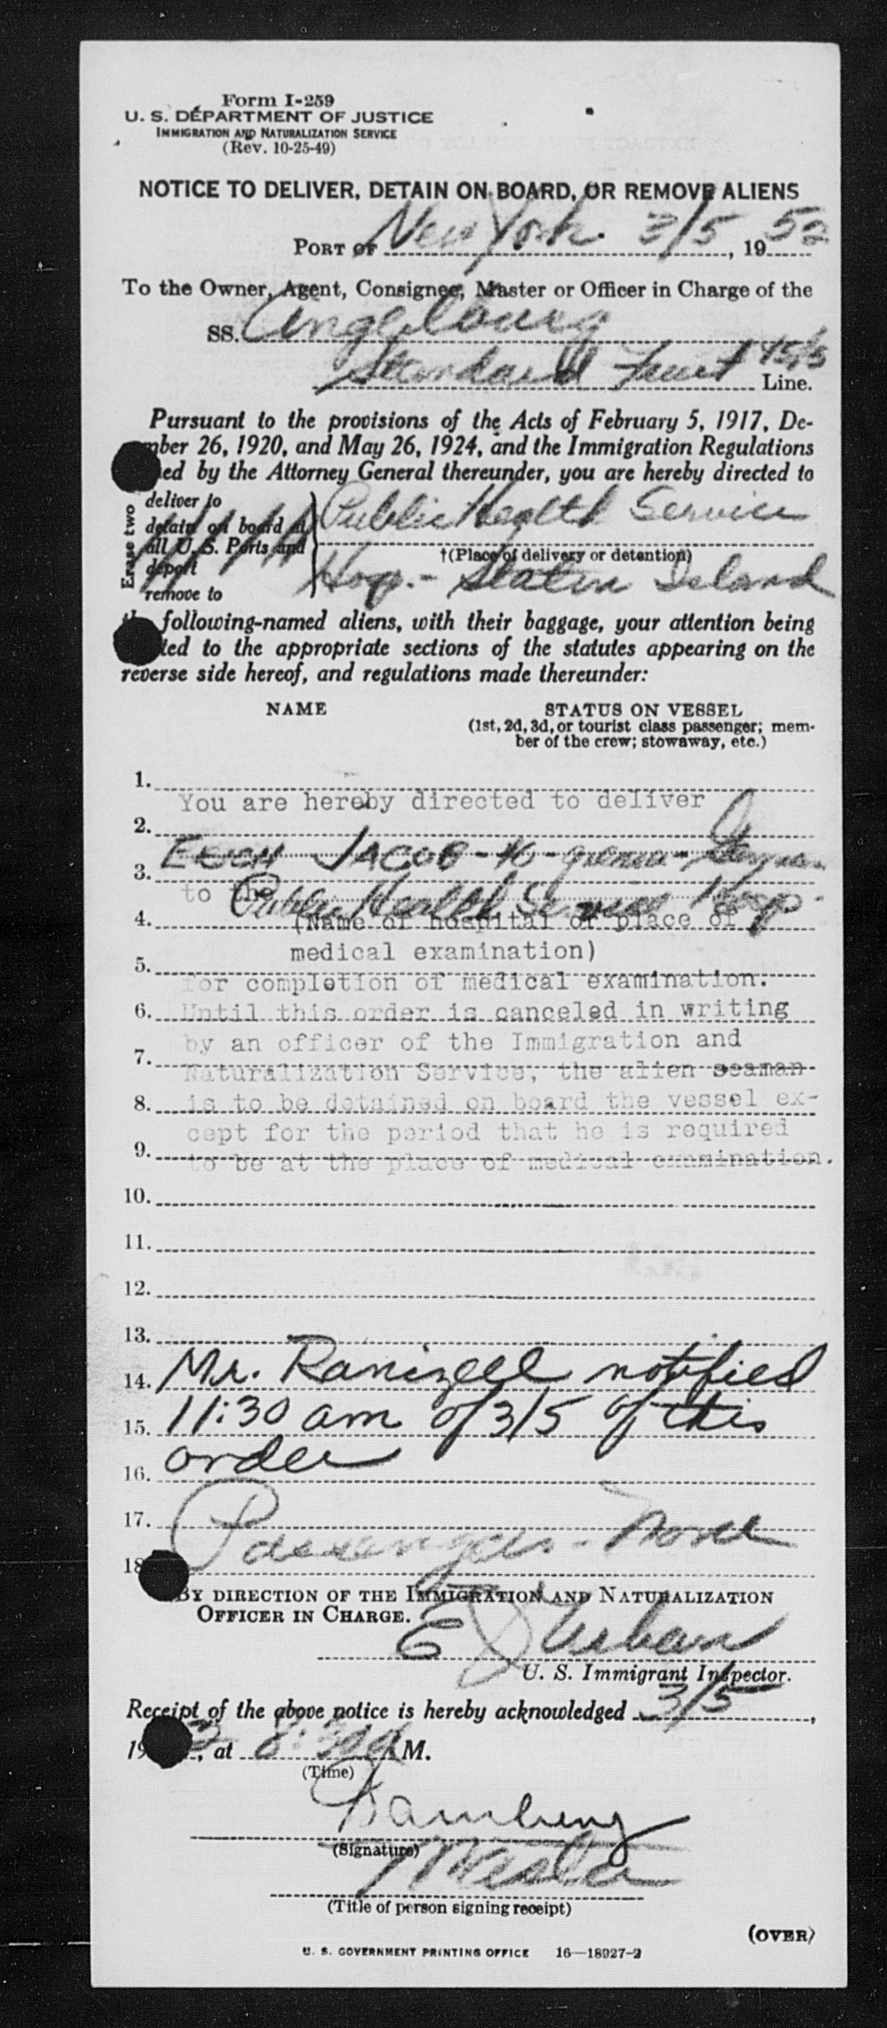 Form I-259
U. S. DEPARTMENT OF JUSTICE
IMMIGRATION AND NATURALIZATION SERVICE
(Rev. 10-25-49)
NOTICE TO DELIVER, DETAIN ON BOARD, OR REMOVE ALIENS
PORT OF New York 3/5, 1952
To the Owner, Agent, Consignee, Master or Officer in Charge of the
SS. Angelburg
Standard Fruit Line.
Pursuant to the provisions of the Acts of February 5, 1917, De-
mber 26, 1920, and May 26, 1924, and the Immigration Regulations
ed by the Attorney General thereunder, you are hereby directed to
Erase two
deliver to
detain on board at
all U. S. Ports and
deport
remove to
Public Health Service
†(Place of delivery or detention)
Hosp. - Staten Island
the following-named aliens, with their baggage, your attention being
ted to the appropriate sections of the statutes appearing on the
reverse side hereof, and regulations made thereunder:
NAME STATUS ON VESSEL
(1st, 2d, 3d, or tourist class passenger; mem-
ber of the crew; stowaway, etc.)
1.
You are hereby directed to deliver
2.
JACOB
3.
to the Public Health Service Hosp.
4. (Name of hospital or place of
medical examination)
5.
for completion of medical examination.
6. Until this order is canceled in writing
by an officer of the Immigration and
7.
Naturalization Service, the alien seaman
8. is to be detained on board the vessel ex-
cept for the period that he is required
9.
to be at the place of medical examination.
10.
11.
12.
13.
14. Mr. notified
15. 11:30 am of 3/5 of this
order
16.
17.
Passengers - None
18
BY DIRECTION OF THE IMMIGRATION AND NATURALIZATION
OFFICER IN CHARGE.
E J Urban
U. S. Immigrant Inspector.
Receipt of the above notice is hereby acknowledged 3/5,
19 2, at 8:30 A M.
(Time)
(Signature)
Master
(Title of person signing receipt)
(OVER)
U. S. GOVERNMENT PRINTING OFFICE 16—18927-2